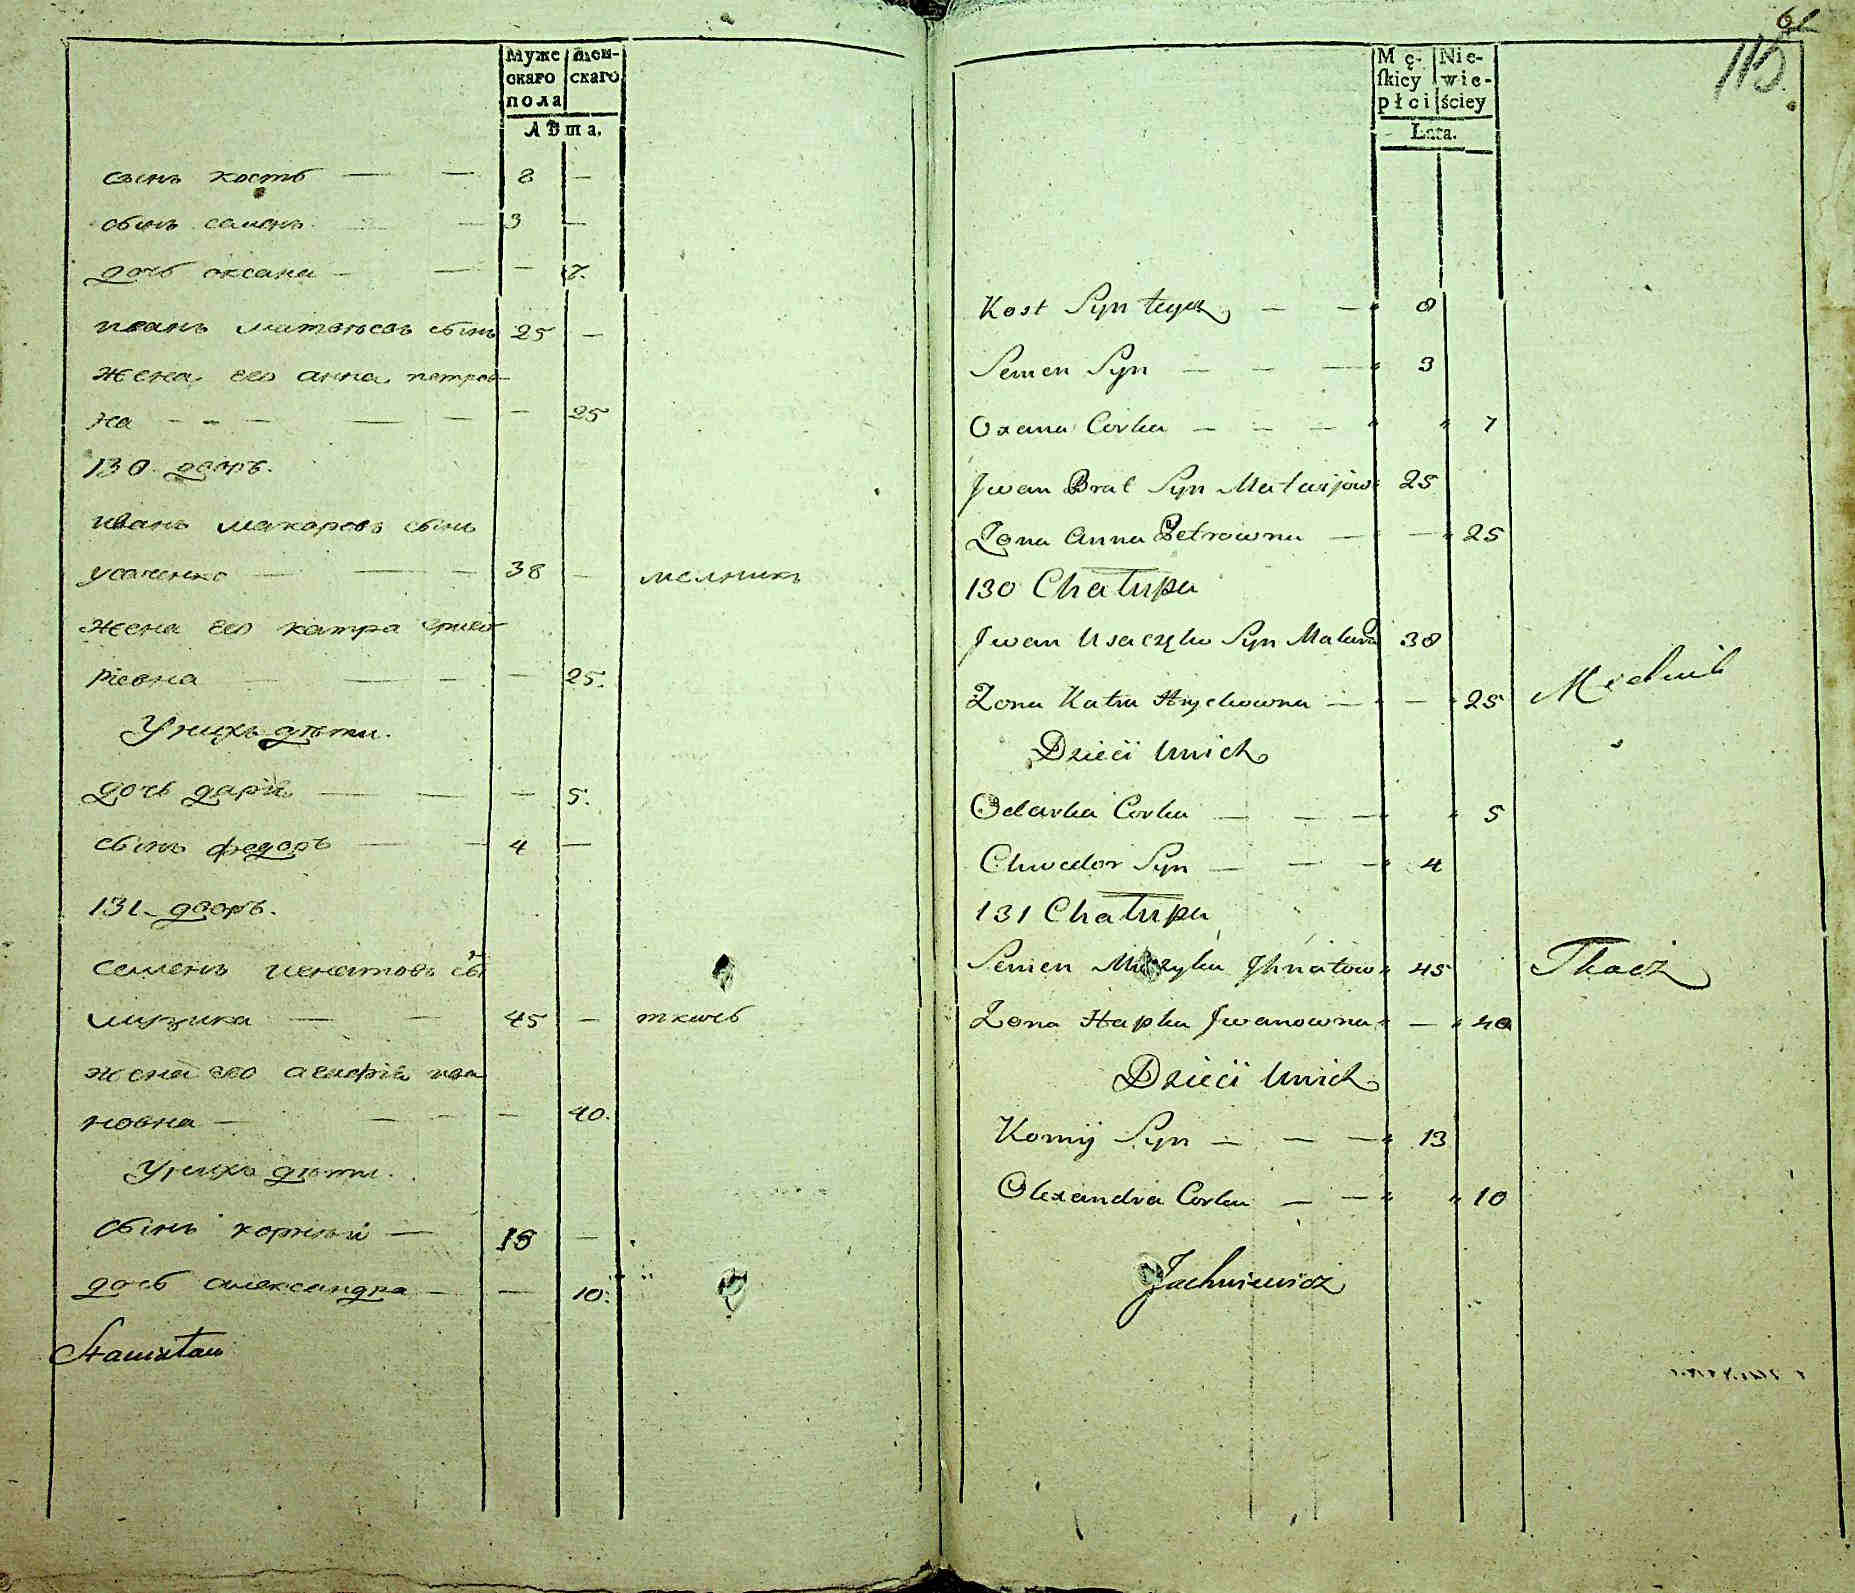 Муже
скаго
пола
Жен-
скаго
Лѣта.
сынъ кость — — 8 —
сынъ семенъ — 3 —
дочь оксана — — — 7.
иванъ матвѣевъ сынъ 25 —
жена его анна петров-
на — — — — — — 25
130 дворъ.
иванъ макаровъ сынъ
усаченко — — — 38 — мелникъ
жена его катра григо
рiевна — — — — 25.
У нихъ дѣти.
дочь дарiя — — — 5.
сынъ федоръ — — 4 —
131 дворъ.
семенъ игнатовъ сы
музика — — 45 — ткачь
жена его агафiя ива
новна — — — — 40.
У нихъ дѣти.
сынъ корнѣй — 13 —
дочь александра — — 10.
Stanisław
62
115.
Mę-
skiey
płci
Nie-
wie-
ściey
Lata.
Kost Syn tegoż — — 8
Semen Syn — — — 3
Oxana Corka — — — 7
Jwan Brat Syn Matwijow 25
Żona Anna Petrowna — — 25
130 Chałupa
Jwan Usaczęko Syn Makara 38
Żona Katra Hrychowna — — 25 Mielnik
Dzieci U nich
Odarka Corka — — — 5
Chwedor Syn — — — 4
131 Chałupa
Semen Muzyka Jhnatow 45 Tkacz
Żona Hapka Jwanowna — 40
Dzieci U nich
Kornij Syn — — — 13
Olexandra Corka — — 10
Jachniewicz